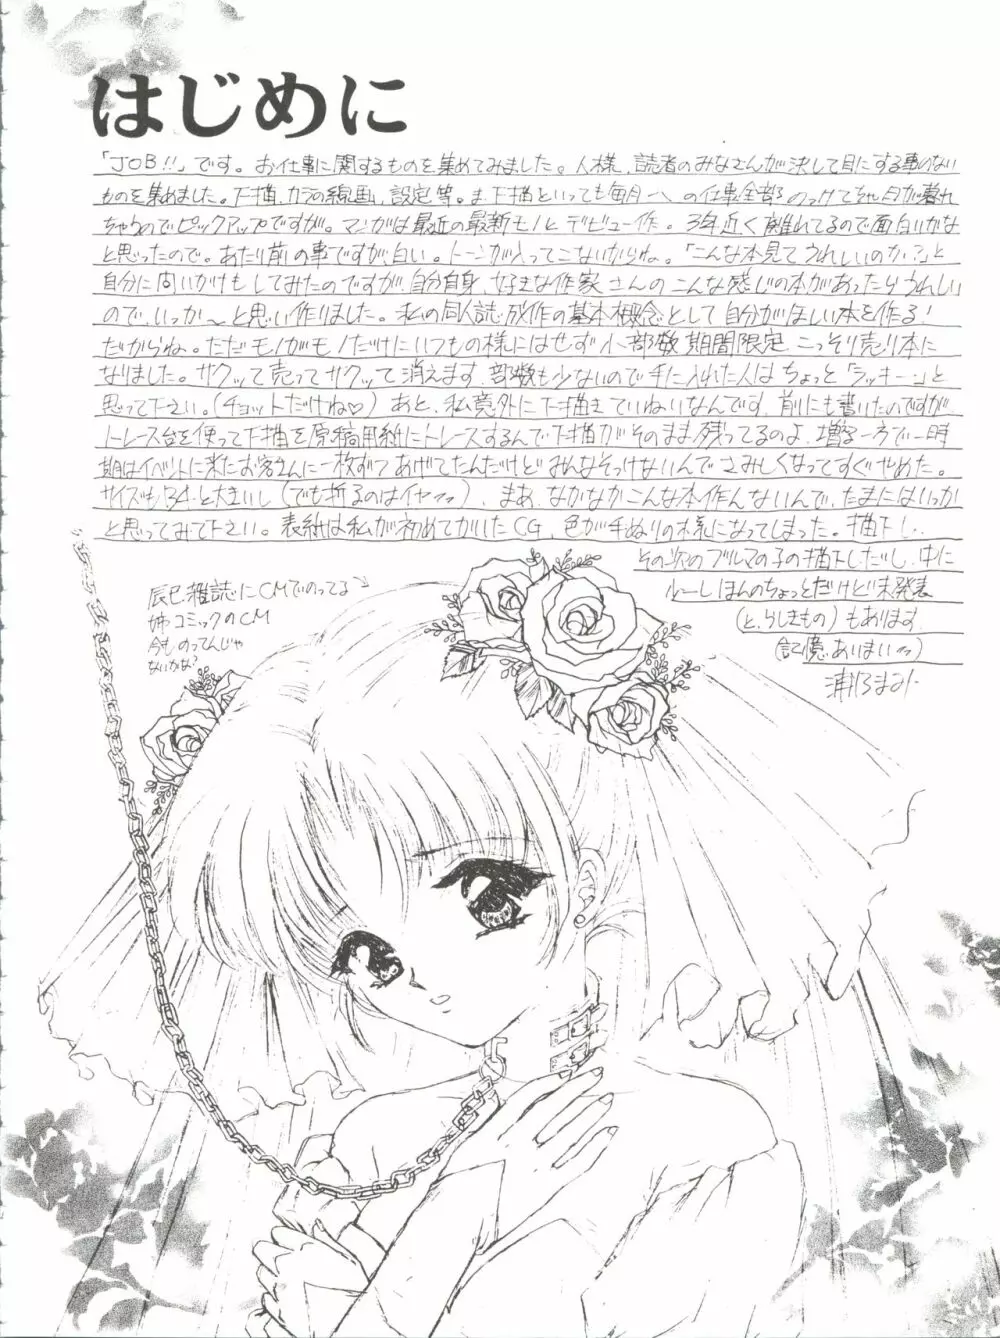 はじめに
「JOB!!」です。お仕事に関するものを集めてみました。人様、読者のみなさんが決して目にする事のない
ものを集めました。下描、カラの線画、設定等。ま、下描といっても毎月 の仕事全部のっけてちゃ日が暮れ
ちゃうのでピックアップですが。マンガは最近の最新モノとデビュー作。3年近く離れてるので面白いかな
と思ったので。あたり前の事ですが白い。トーンが入ってこないからね。「こんな本見てうれしいのか?」と
自分に問いかけもしてみたのですが、自分自身、好きな作家さんのこんな感じの本があったらうれしい
ので、いっか〜と思い作りました。私の同人誌成作の基本概念として自分がほしい本を作る!
だからね。ただモノがモノだけにいつもの様にはせず小部数期間限定、こっそり売り本に
なりました。サクッて売ってサクッて消えます。部数も少ないので手に入れた人はちょっと「ラッキー」と
思って下さい。(チョットだけね♡)あと、私意外に下描きていねいなんです。前にも書いたのですが
トレース台を使って下描を原稿用紙にトレースするんで下描がそのまま残ってるのよ。増る一方で一時
期はイベントに来たお客さんに一枚ずつあげてたんだけどみんなそっけないんでさみしくなってすぐやめた。
サイズもB4と大きいし(でも折るのはイヤッッ)、まあ、なかなかこんな本作んないんで、たまにはいっか
と思ってみて下さい。表紙は私が初めてかいたCG、色が手ぬりの様になってしまった。描下し、
その次のブルマの子の描下しだし、中に
ほんのちょっとだけど未発表
(と、らしきもの)もあります。
(記憶あいまいッ)
辰巳雑誌にCMでのってる
姉コミックのCM
今ものってんじゃ
ないかな?